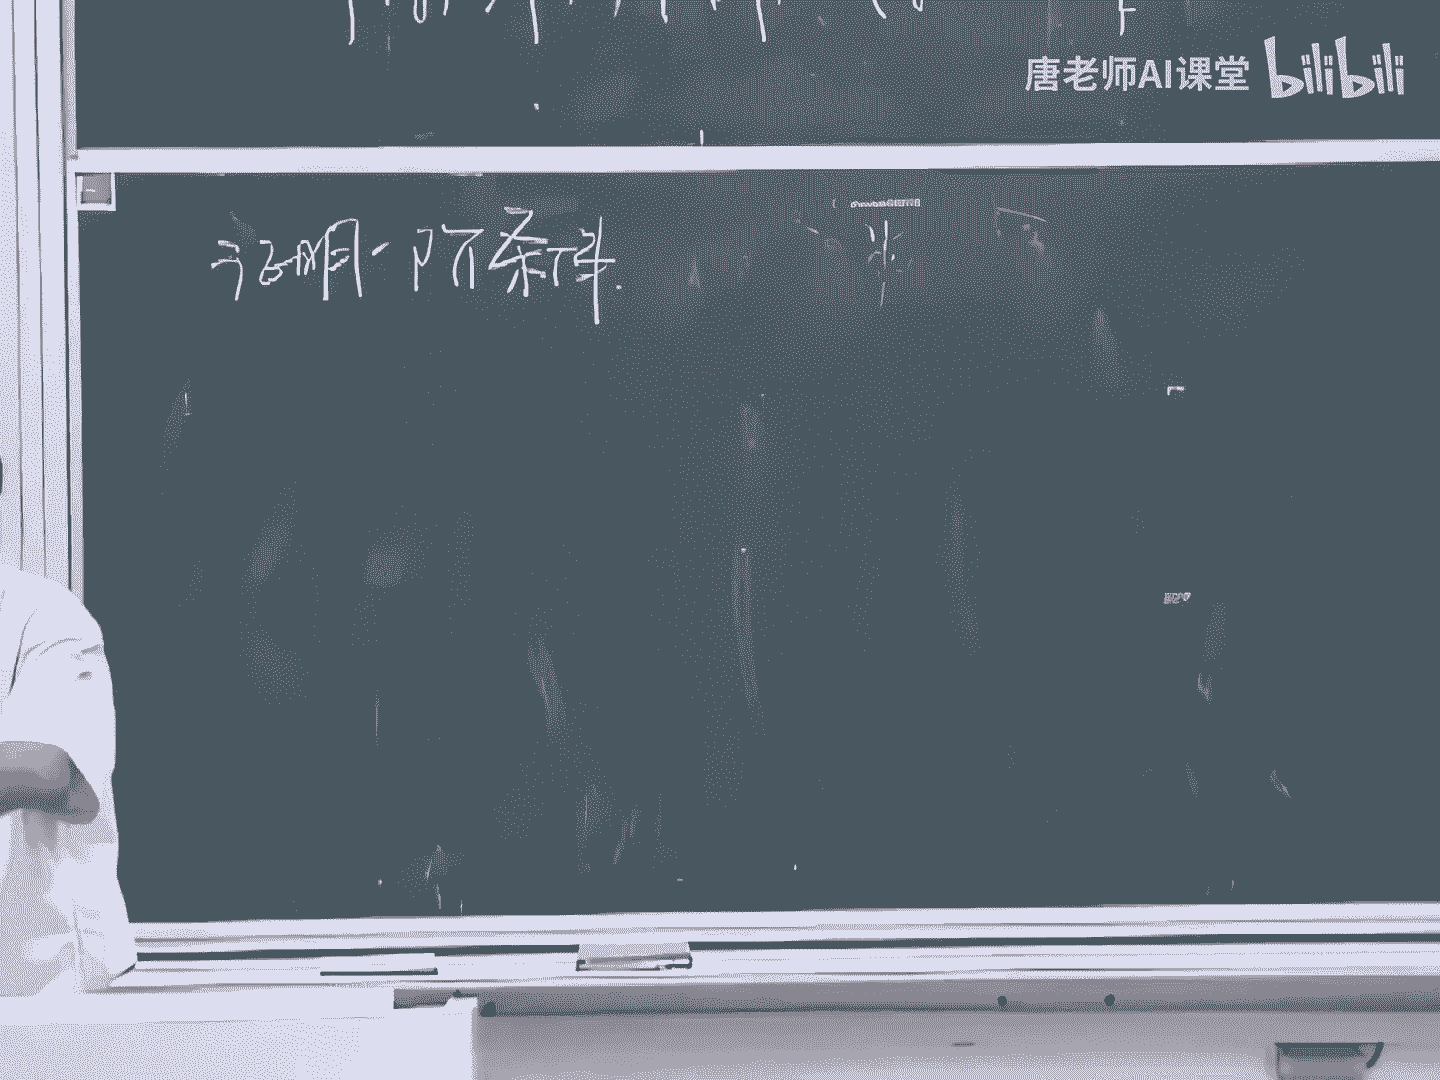 唐老师AI课堂 bilibili
证明一阶条件.